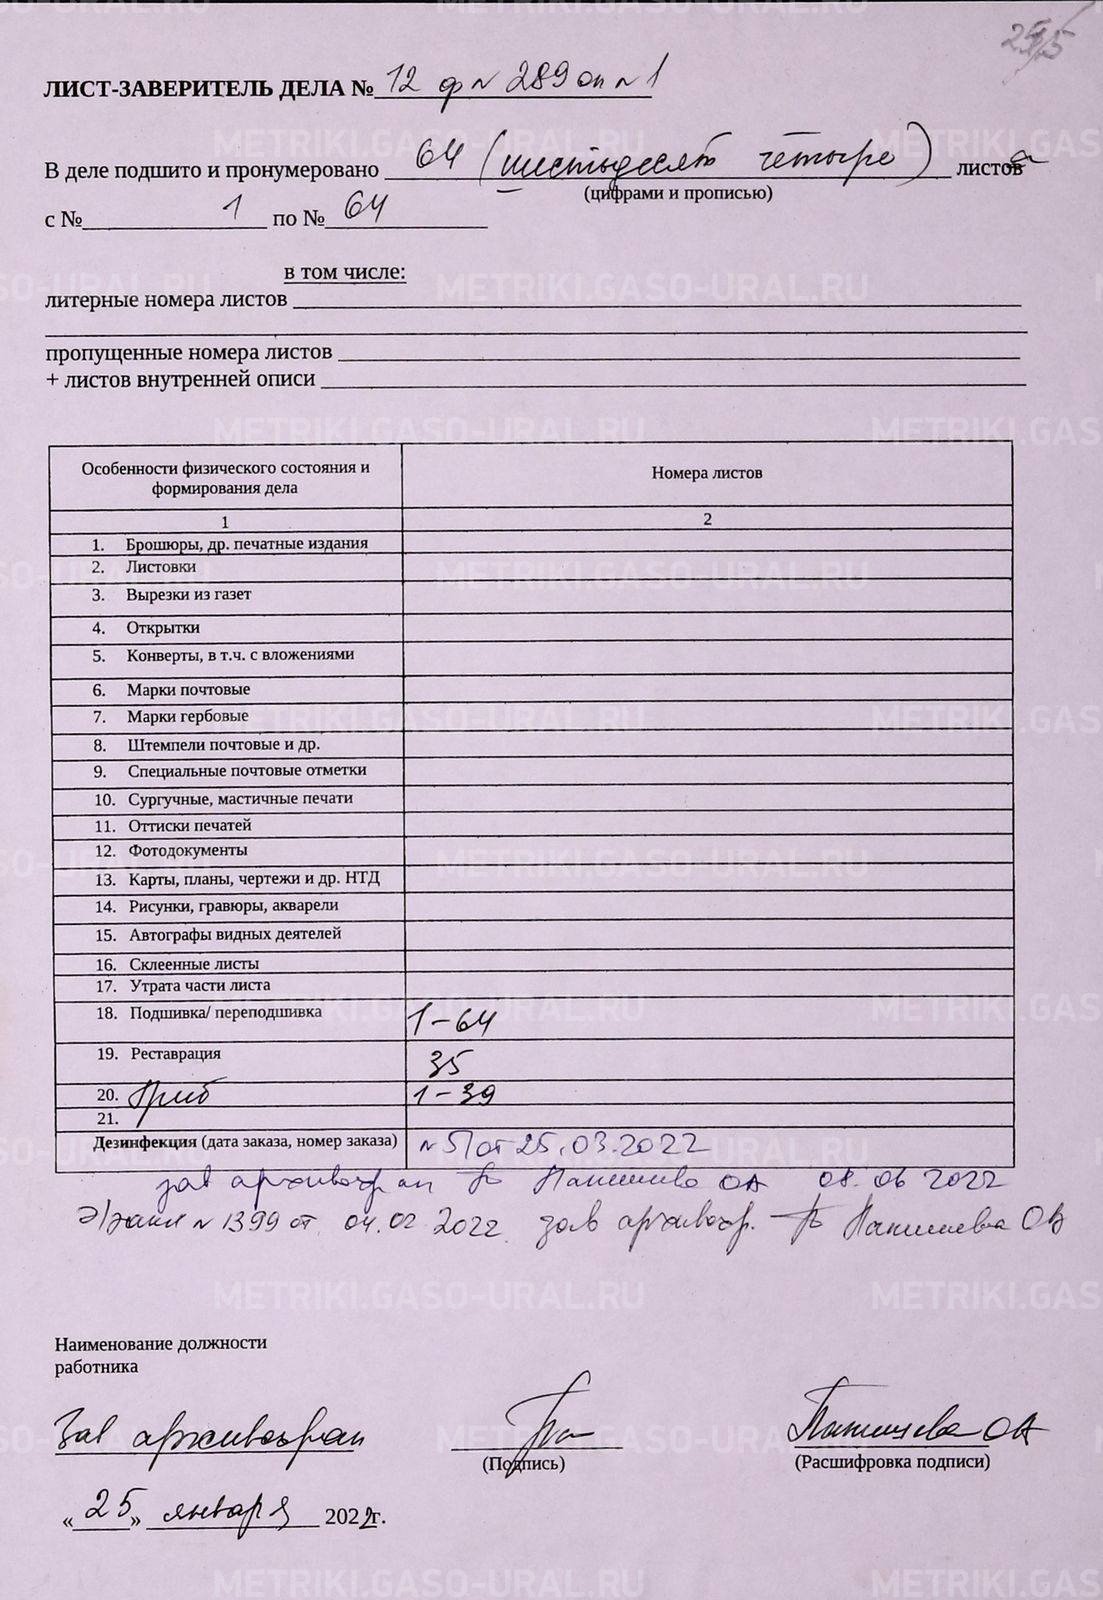 ЛИСТ-ЗАВЕРИТЕЛЬ ДЕЛА № 12 ф № 289 оп № 1
В деле подшито и пронумеровано 64 (шестьдесят четыре) листа
(цифрами и прописью)
с № 1 по № 64
в том числе:
литерные номера листов
пропущенные номера листов
+ листов внутренней описи
Особенности физического состояния и формирования дела
Номера листов
1
2
1. Брошюры, др. печатные издания
2. Листовки
3. Вырезки из газет
4. Открытки
5. Конверты, в т.ч. с вложениями
6. Марки почтовые
7. Марки гербовые
8. Штемпели почтовые и др.
9. Специальные почтовые отметки
10. Сургучные, мастичные печати
11. Оттиски печатей
12. Фотодокументы
13. Карты, планы, чертежи и др. НТД
14. Рисунки, гравюры, акварели
15. Автографы видных деятелей
16. Склеенные листы
17. Утрата части листа
18. Подшивка/ переподшивка 1-64
19. Реставрация 35
20. Гриб 1-39
21.
Дезинфекция (дата заказа, номер заказа) №51 от 25.03.2022
зав архивохран ОА 08.06 2022
№ 1399 от 04.02.2022 зав архивохр.
Наименование должности
работника
Зав архивохран
(Подпись)
(Расшифровка подписи)
«25» января 2022г.
METRIKI.GASO-URAL.RU